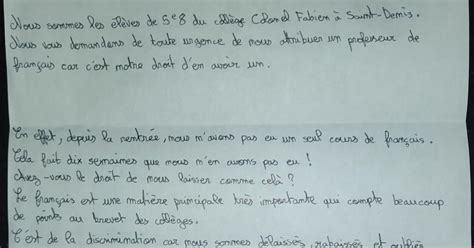 Nous sommes les élèves de 5e8 du collège Colonel Fabien à Saint-Denis.
Nous vous demandons de toute urgence de nous attribuer un professeur de
français car c'est notre droit d'en avoir un.
En effet, depuis la rentrée, nous n'avons pas eu un seul cours de français.
Cela fait dix semaines que nous n'en avons pas eu !
Avez-vous le droit de nous laisser comme celà ?
Le français est une matière principale très importante qui compte beaucoup
de points au brevet des collèges.
C'est de la discrimination car nous sommes délaissés, rabaissés et oubliés